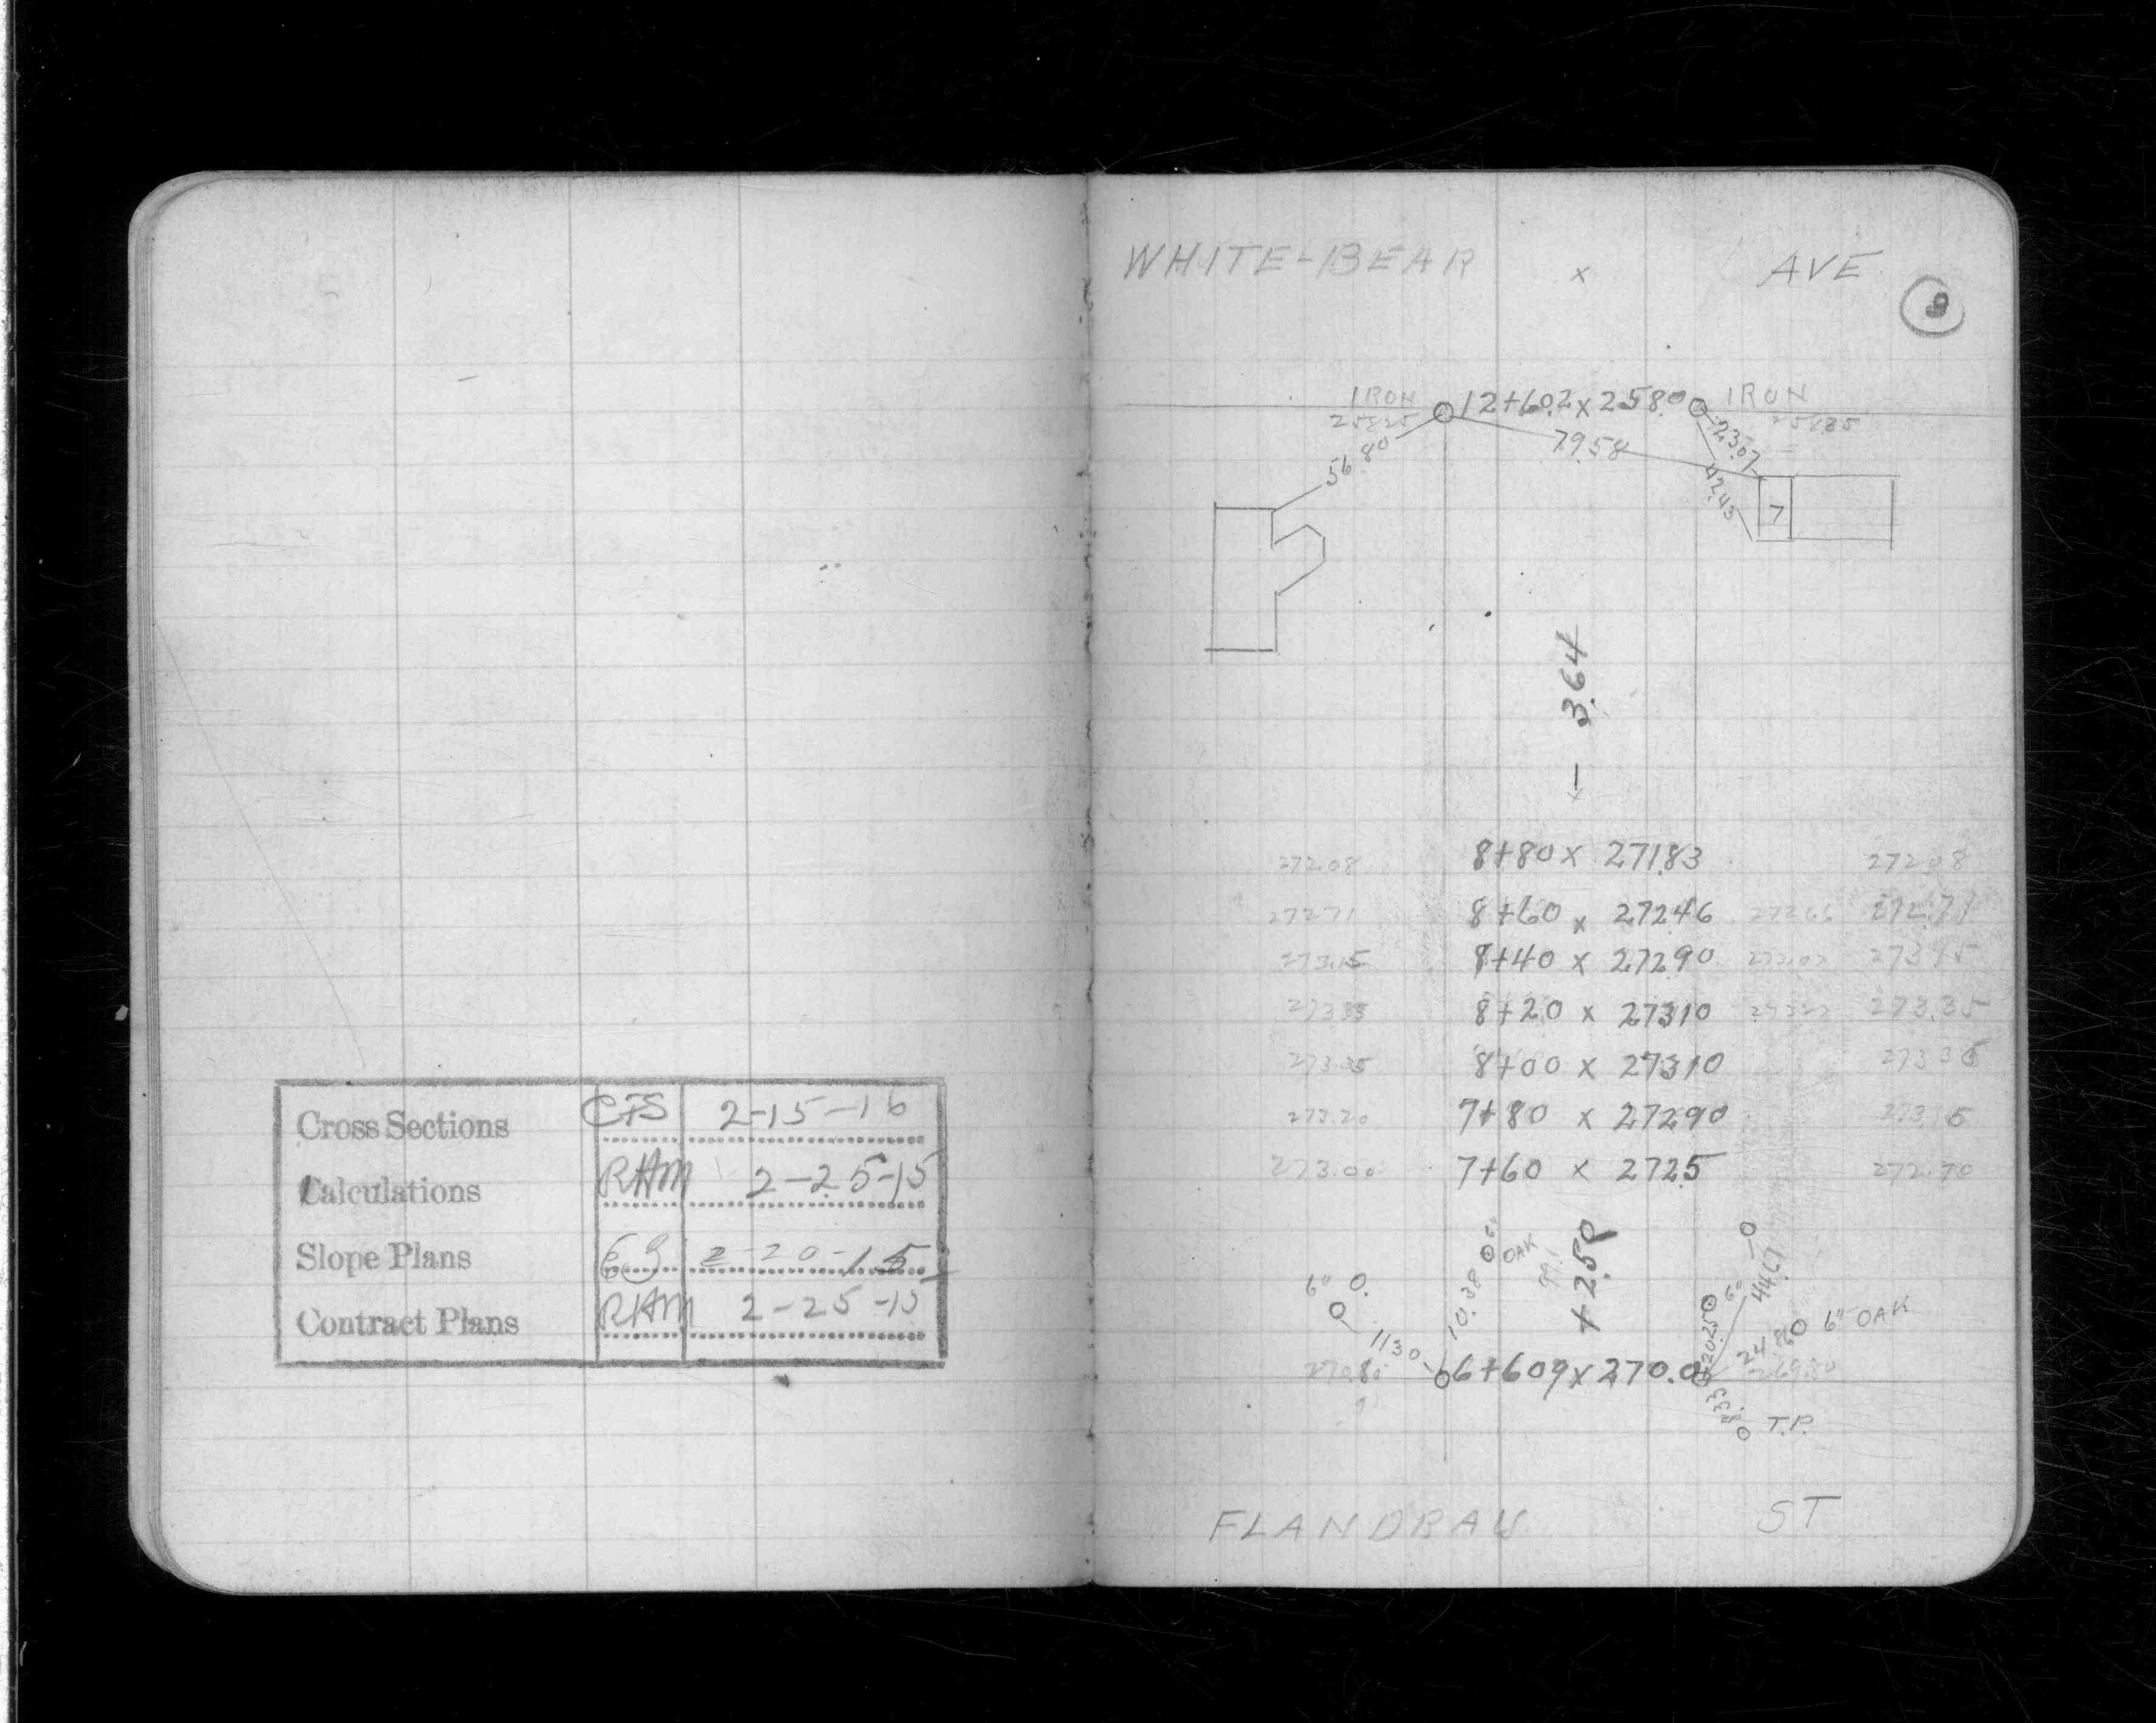 Cross Sections CFS 2-15-16
Calculations RHM 2-25-15
Slope Plans 2-20-15
Contract Plans RHM 2-25-15
WHITE-BEAR x AVE
9
IRON 12+60.2 x 258.0 IRON
258.25 258.25
56.80 79.58 23.07
42.43
7
— 3.64
272.08 8+80 x 271.83 272.08
272.71 8+60 x 272.46 272.66 272.71
273.15 8+40 x 272.90 273.07 273.15
273.35 8+20 x 273.10 273.27 273.35
273.35 8+00 x 273.10 273.35
273.20 7+80 x 272.90 273.15
273.00 7+60 x 272.5 272.70
6" O. 10.38 6" OAK + 2.50 44.67
11.30 20.25 6" 24.8 6" OAK
270.80 6+60.9 x 270.0 269.50
33.8 T.P.
FLANDRAU ST